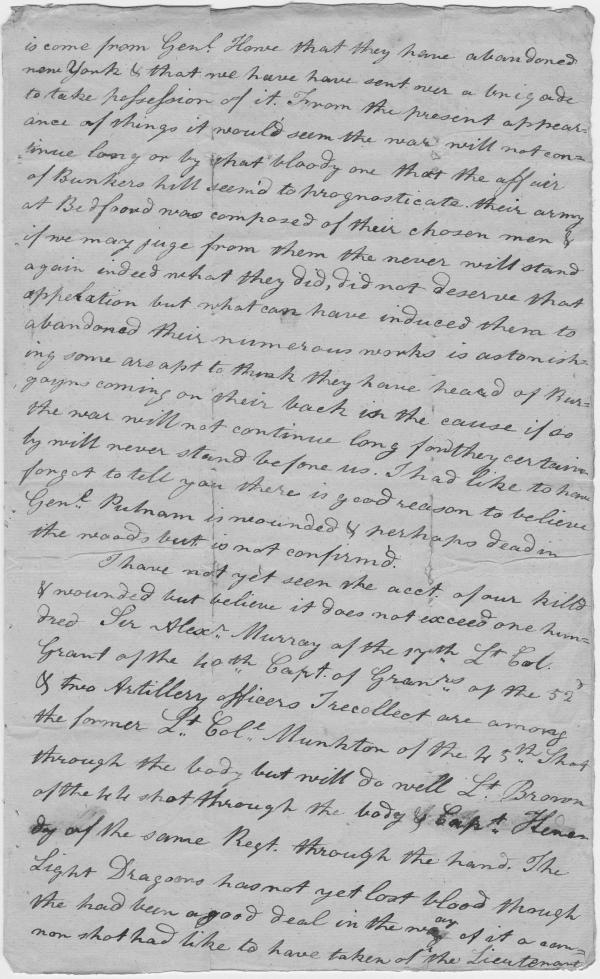 is come from Genl. Howe that they have abandoned
new York & that we have have sent over a brigade
to take possession of it. From the present appear-
ance of things it would seem the war will not con-
tinue long or by that bloody one that the affair
of Bunkers hill seem'd to prognosticate. their army
at Bedfoord was composed of their chosen men &
if we may juge from them the never will stand
again indeed what they did, did not deserve that
appelation but what can have induced them to
abandoned their numerous works is astonish-
ing some are apt to think they have heard of Bur-
goyns coming on their back is the cause if so
the war will not continue long for they certain-
by will never stand before us. I had like to have
forgot to tell you there is good reason to believe
Genl. Putnam is wounded & perhaps dead in
the woods but is not confirmd.
I have not yet seen the acct. of our killd
& wounded but believe it does not exceed one hun-
dred Sir Alexr. Murray of the 17th Lt Col.
Grant of the 40th Capt. of Granrs of the 52d
& two Artillery officers I recollect are among
the former Lt. Cole. Munkton of the 45th Shot
through the body but will do well Lt. Brown
of the 44 shot through the body & Capt. Kenen
dy of the same Regt. through the hand. The
Light Dragoons has not yet lost blood though
the had been a good deal in the way of it a can-
non shot had like to have taken of the Lieutenant